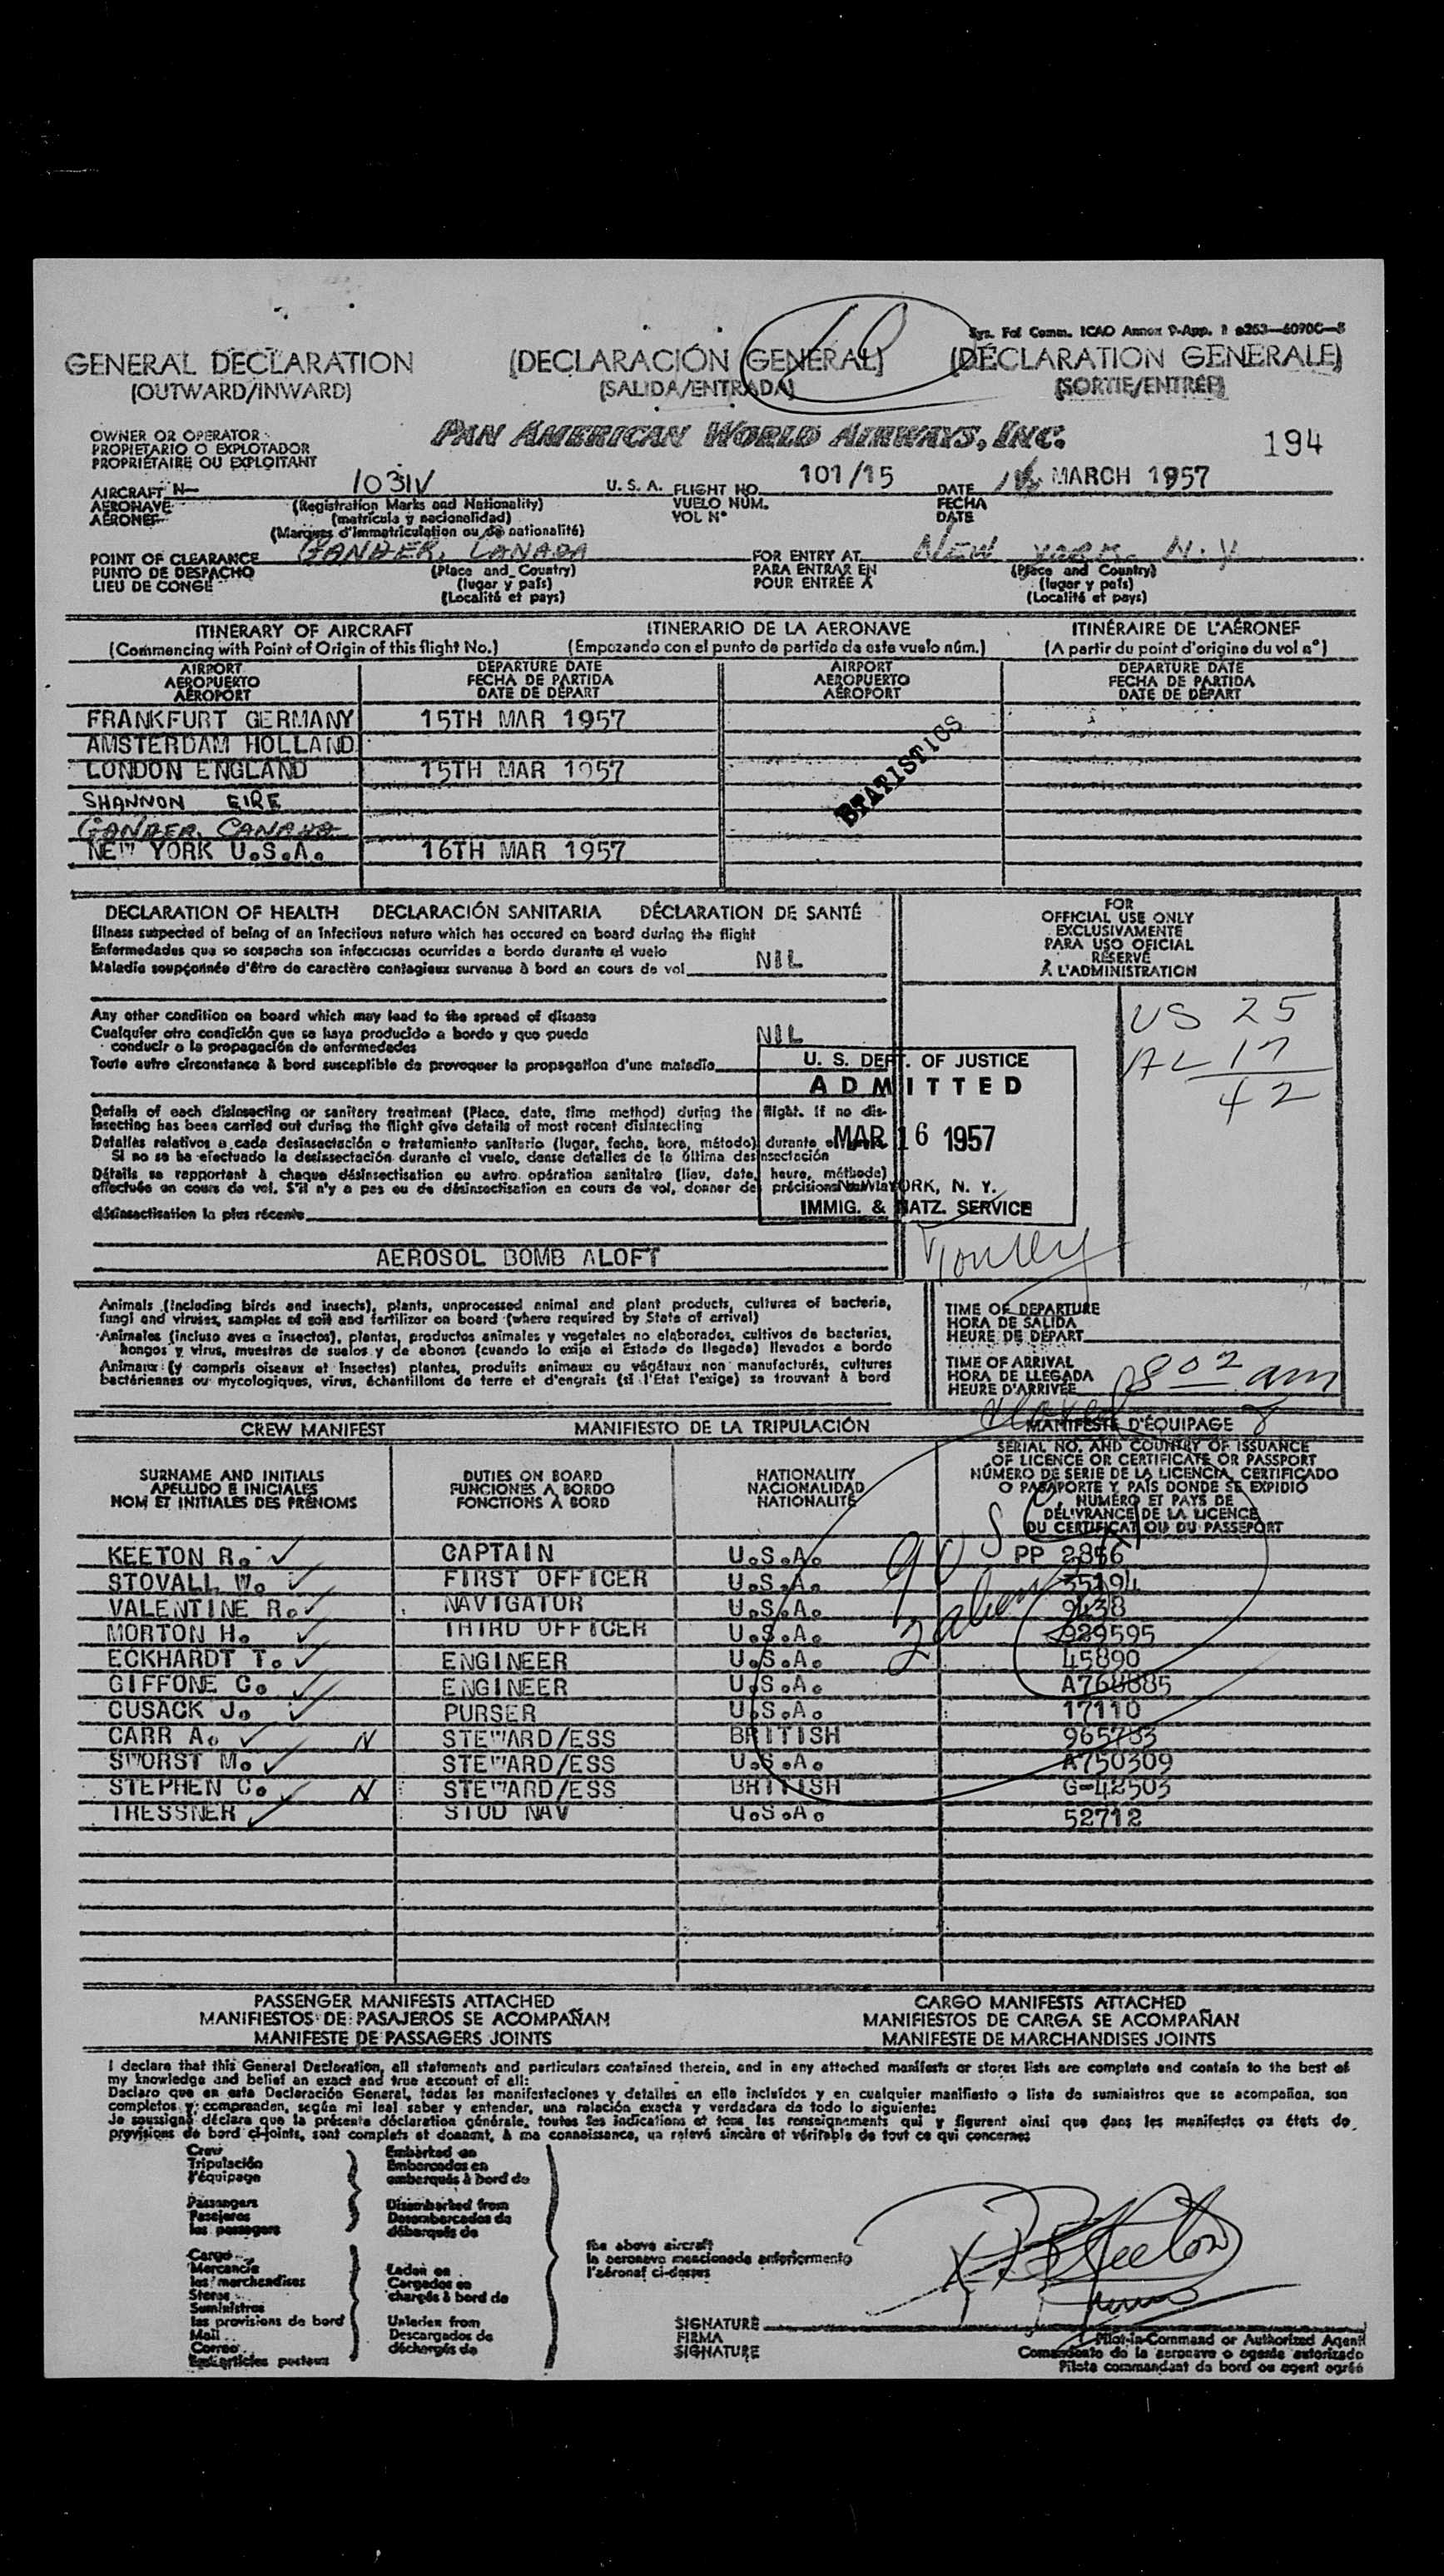 Sys. Fol Comm. ICAO Annex 9-App. 1 e253—6090C—8
GENERAL DECLARATION (DECLARACIÓN GENERAL) (DÉCLARATION GENERALE)
(OUTWARD/INWARD) (SALIDA/ENTRADA) (SORTIE/ENTRÉE)
OWNER OR OPERATOR
PROPIETARIO O EXPLOTADOR
PROPRIÉTAIRE OU EXPLOITANT
PAN AMERICAN WORLD AIRWAYS, INC.
194
AIRCRAFT N— 1031V U. S. A. FLIGHT NO. 101/15 DATE MARCH 1957
AERONAVE (Registration Marks and Nationality) VUELO NÚM. FECHA
AÉRONEF (matrícula y nacionalidad) VOL N° DATE
(Marques d'immatriculation ou de nationalité)
POINT OF CLEARANCE GANDER, CANADA FOR ENTRY AT NEW YORK. N.Y
PUNTO DE DESPACHO (Place and Country) PARA ENTRAR EN (Place and Country)
LIEU DE CONGE (lugar y país) POUR ENTRÉE À (lugar y país)
(Localité et pays) (Localité et pays)
ITINERARY OF AIRCRAFT ITINERARIO DE LA AERONAVE ITINÉRAIRE DE L'AÉRONEF
(Commencing with Point of Origin of this flight No.) (Empezando con el punto de partida de este vuelo núm.) (A partir du point d'origine du vol n°)
AIRPORT DEPARTURE DATE AIRPORT DEPARTURE DATE
AEROPUERTO FECHA DE PARTIDA AEROPUERTO FECHA DE PARTIDA
AÉROPORT DATE DE DÉPART AÉROPORT DATE DE DÉPART
FRANKFURT GERMANY 15TH MAR 1957
AMSTERDAM HOLLAND
LONDON ENGLAND 15TH MAR 1957
SHANNON EIRE
GANDER, CANADA
NEW YORK U.S.A. 16TH MAR 1957
STATISTICS
DECLARATION OF HEALTH DECLARACIÓN SANITARIA DÉCLARATION DE SANTÉ
Illness suspected of being of an infectious nature which has occured on board during the flight
Enfermedades que se sospecha son infecciosas ocurridas a bordo durante el vuelo
Maladie soupçonnée d'être de caractère contagieux survenue à bord en cours de vol NIL
Any other condition on board which may lead to the spread of disease
Cualquier otra condición que se haya producido a bordo y que pueda
conducir a la propagación de enfermedades NIL
Toute autre circonstance à bord susceptible de provoquer la propagation d'une maladie
Details of each disinsecting or sanitary treatment (Place, date, time method) during the flight. If no dis-
insecting has been carried out during the flight give details of most recent disinsecting
Detalles relativos a cada desinsectación o tratamiento sanitario (lugar, fecha, hora, método) durante
Si no se ha efectuado la desissectación durante el vuelo, dense detalles de la última desinsectación
Détails se rapportant à chaque désinsectisation ou autre opération sanitaire (lieu, date, heure, méthode)
effectuée en cours de vol. S'il n'y a pas eu de désinsectisation en cours de vol, donner des précisions
désinsectisation la plus récente
AEROSOL BOMB ALOFT
FOR
OFFICIAL USE ONLY
EXCLUSIVAMENTE
PARA USO OFICIAL
RÉSERVÉ
À L'ADMINISTRATION
US 25
AL 17
42
U. S. DEPT. OF JUSTICE
ADMITTED
MAR 16 1957
NEW YORK, N. Y.
IMMIG. & NATZ. SERVICE
Animals (including birds and insects), plants, unprocessed animal and plant products, cultures of bacteria,
fungi and viruses, samples of soil and fertilizer on board (where required by State of arrival)
Animales (incluso aves a insectos), plantas, productos animales y vegetales no elaborados, cultivos de bacterias,
hongos y virus, muestras de suelos y de abonos (cuando lo exija el Estado de llegada) llevados a bordo
Animaux (y compris oiseaux et insectes) plantes, produits animaux ou végétaux non manufacturés, cultures
bactériennes ou mycologiques, virus, échantillons de terre et d'engrais (si l'Etat l'exige) se trouvant à bord
TIME OF DEPARTURE
HORA DE SALIDA
HEURE DE DÉPART
TIME OF ARRIVAL
HORA DE LLEGADA
HEURE D'ARRIVÉE 802 am
CREW MANIFEST MANIFIESTO DE LA TRIPULACIÓN MANIFESTE D'ÉQUIPAGE
SURNAME AND INITIALS DUTIES ON BOARD NATIONALITY SERIAL NO. AND COUNTRY OF ISSUANCE
APELLIDO E INICIALES FUNCIONES A BORDO NACIONALIDAD OF LICENCE OR CERTIFICATE OR PASSPORT
NOM ET INITIALES DES PRÉNOMS FONCTIONS À BORD NATIONALITÉ NÚMERO DE SERIE DE LA LICENCIA, CERTIFICADO
O PASAPORTE Y PAÍS DONDE SE EXPIDIÓ
NUMÉRO ET PAYS DE
DÉLIVRANCE DE LA LICENCE
DU CERTIFICAT OU DU PASSEPORT
KEETON R. CAPTAIN U.S.A. PP 2856
STOVALL W. FIRST OFFICER U.S.A. 35194
VALENTINE R. NAVIGATOR U.S.A. 9438
MORTON H. THIRD OFFICER U.S.A. 929595
ECKHARDT T. ENGINEER U.S.A. 45890
GIFFONE C. ENGINEER U.S.A.
CUSACK J. PURSER U.S.A. 17110
CARR A. N STEWARD/ESS BRITISH 965783
SWORST M. STEWARD/ESS U.S.A. A750309
STEPHEN C. N STEWARD/ESS BRITISH G-42503
TRESSNER STUD NAV U.S.A. 52712
PASSENGER MANIFESTS ATTACHED CARGO MANIFESTS ATTACHED
MANIFIESTOS DE PASAJEROS SE ACOMPAÑAN MANIFIESTOS DE CARGA SE ACOMPAÑAN
MANIFESTE DE PASSAGERS JOINTS MANIFESTE DE MARCHANDISES JOINTS
I declare that this General Declaration, all statements and particulars contained therein, and in any attached manifests or stores lists are complete and contain to the best of
my knowledge and belief an exact and true account of all:
Declaro que en esta Declaración General, todas las manifestaciones y detalles en ella incluídos y en cualquier manifiesto o lista de suministros que se acompañan, son
completos y comprenden, según mi leal saber y entender, una relación exacta y verdadera de todo lo siguiente:
Je soussigné déclare que la présente déclaration générale, toutes les indications et tous les renseignements qui y figurent ainsi que dans les manifestes ou états de
provisions de bord ci-joints, sont complets et donnent, à ma connaissance, un relevé sincère et véritable de tout ce qui concerne:
Crew Embarked on
Tripulación Embarcados en
l'équipage embarqués à bord de
Passengers Disembarked from
Pasajeros Desembarcados de
les passagers débarqués de
Cargo
Mercancía Laden on
les marchandises Cargados en
Stores chargés à bord de
Suministros
les provisions de bord Unladen from
Mail Descargados de
Correo déchargés de
Les articles postaux
the above aircraft
la aeronave mencionada anteriormente
l'aéronef ci-dessus
SIGNATURE
FIRMA
SIGNATURE
Pilot-in-Command or Authorized Agent
Comandante de la aeronave o agente autorizado
Pilote commandant de bord ou agent agréé